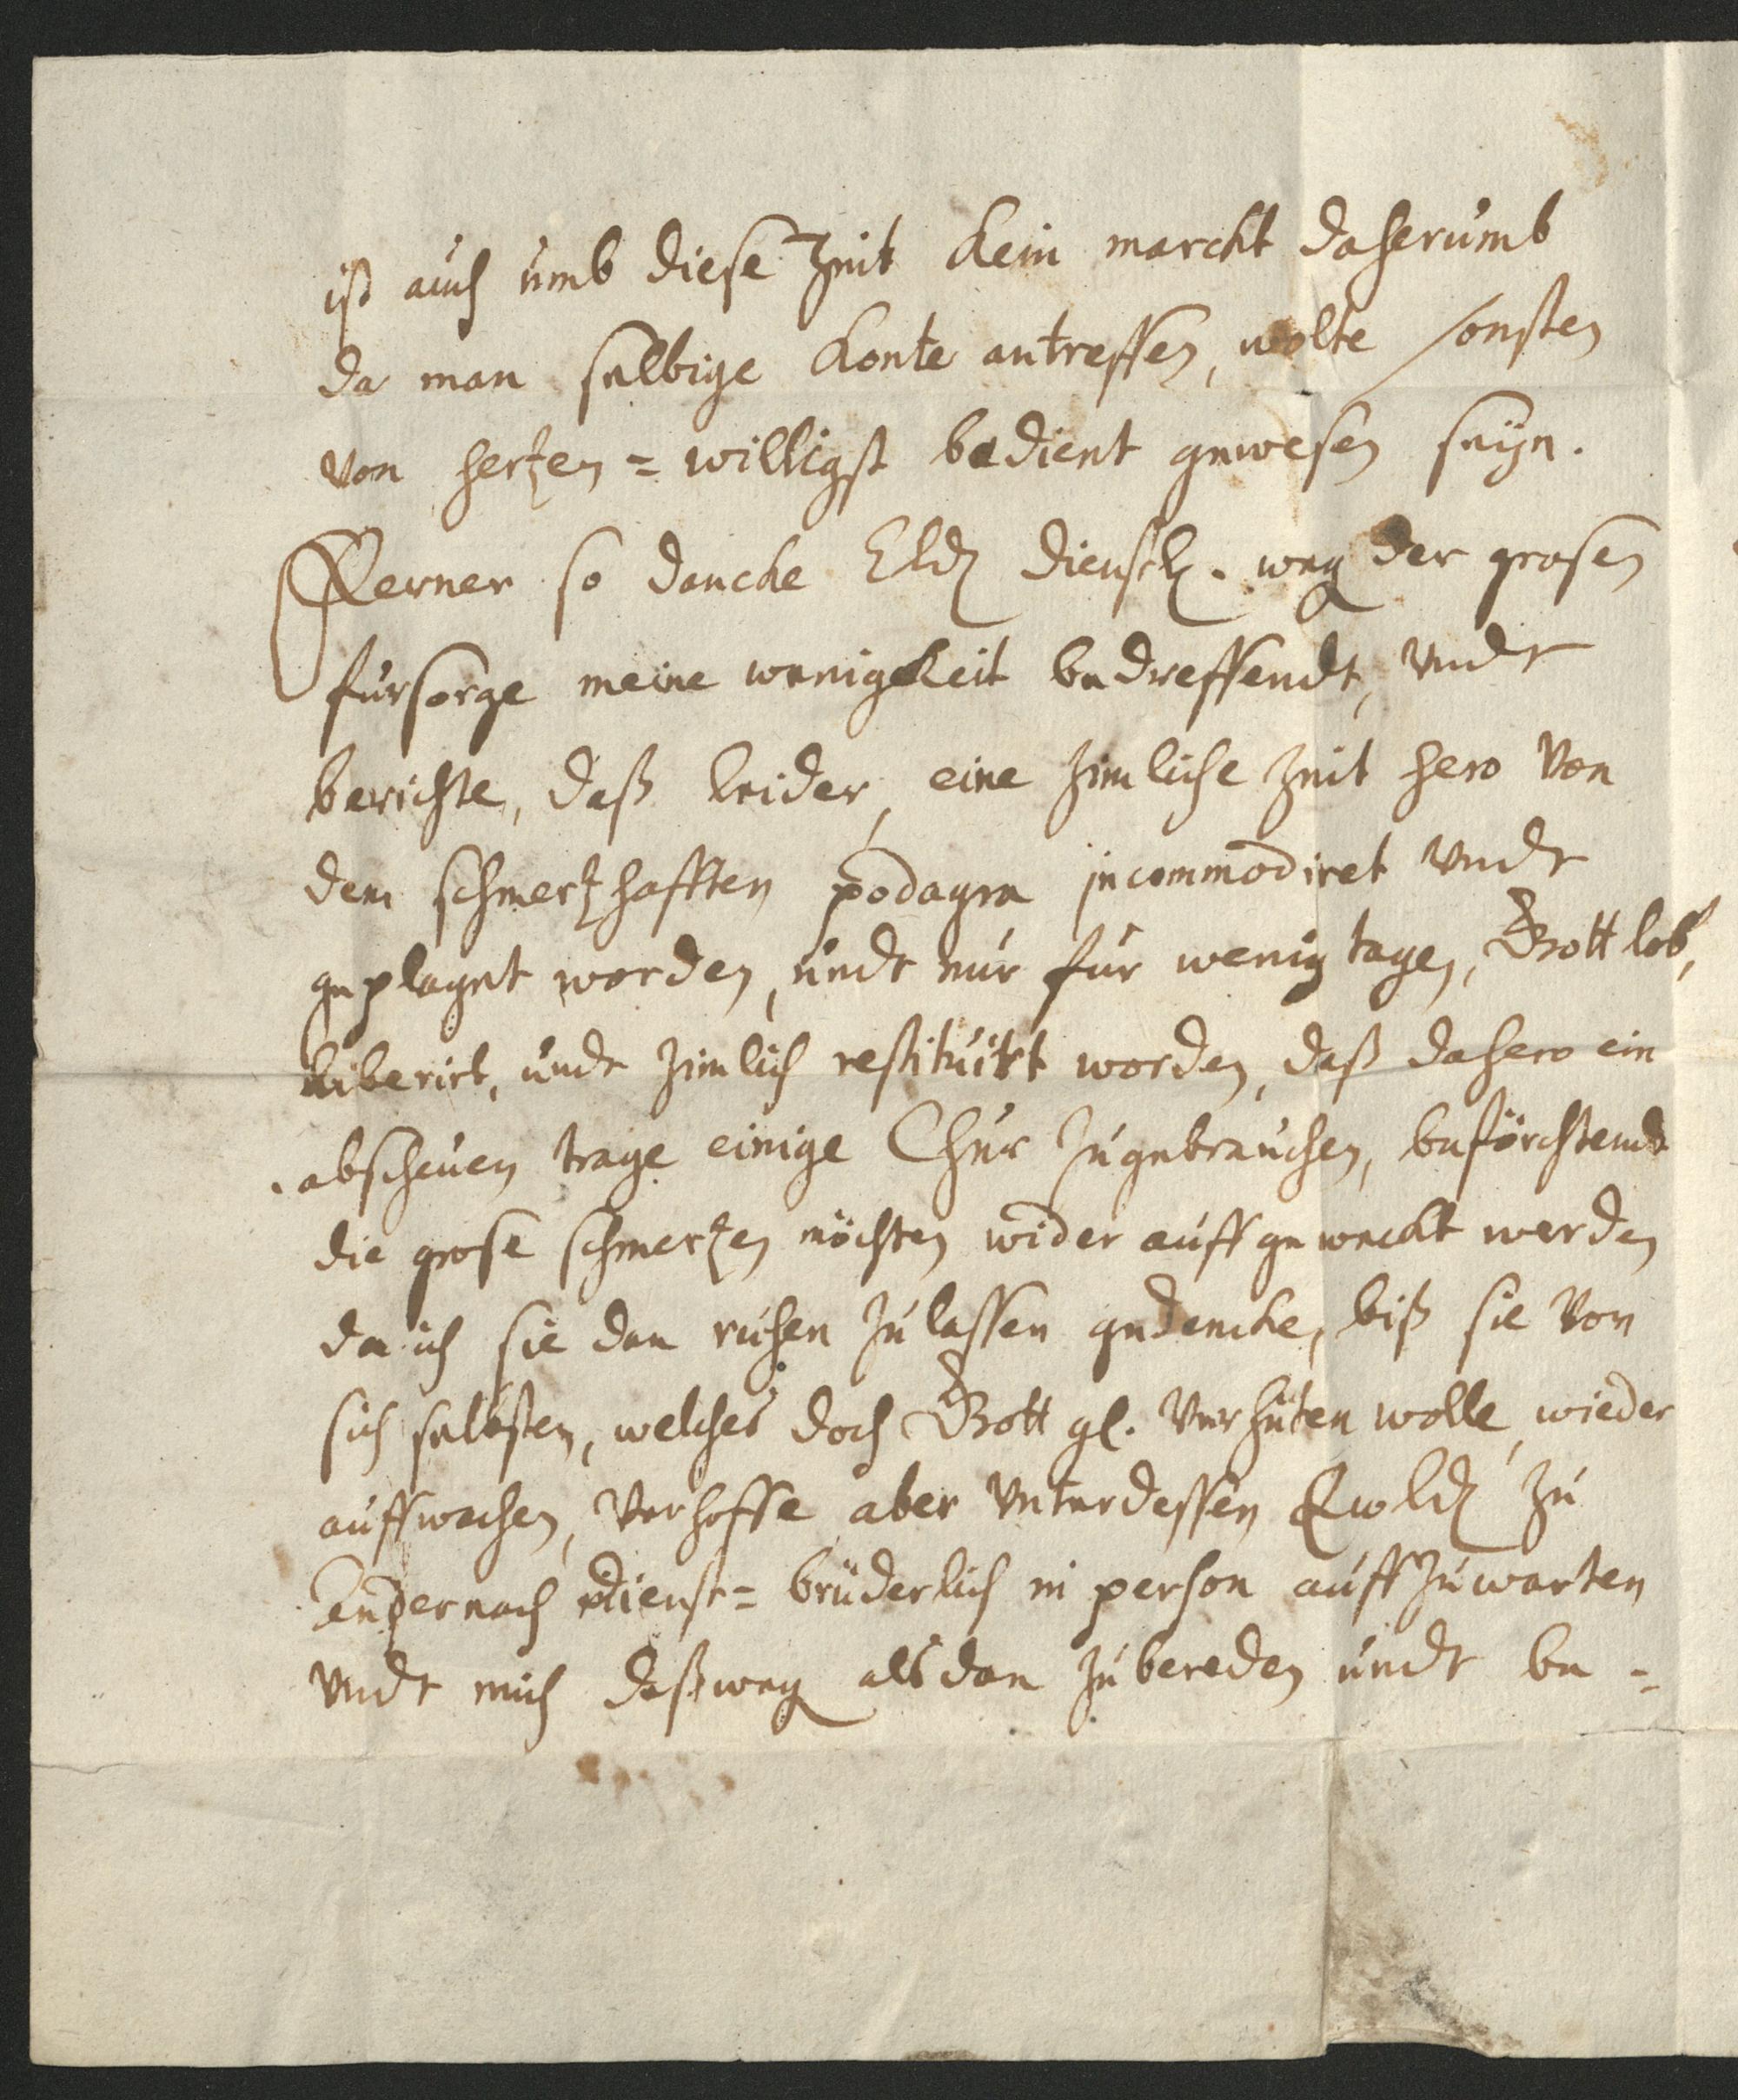 ist auch umb diese Zeit kein marckt daherumb
da man selbige konte antreffen, wolte sonsten
von hertzen = willigst bedient gewesen seyn.
Ferner so dancke dienstl. weg der grosen
fursorge meine wenigkeit bedreffendt, vndt
berichte, daß leider, eine zimliche Zeit hero von
dem schmertzhafften podagra incommodiret vndt
geplaget worden, undt nur fur wenig tagen, Gott lob,
liberirt, undt zimlich restituirt worden, daß dahero ein
abscheuen trage einige Chur zugebrauchen, beförchtendt
die grose schmertzen möchten wider auffgeweckt werden
da ich sie dan ruhen zulassen gedencke, biß sie von
sich selbsten, welches doch Gott gl. verhüten wolle, wieder
auffwachen, verhoffe aber unterdessen zu
Andernach dienst= brüderlich in person auffzuwarten
vndt mich deßweg alsdan zubereden undt be =